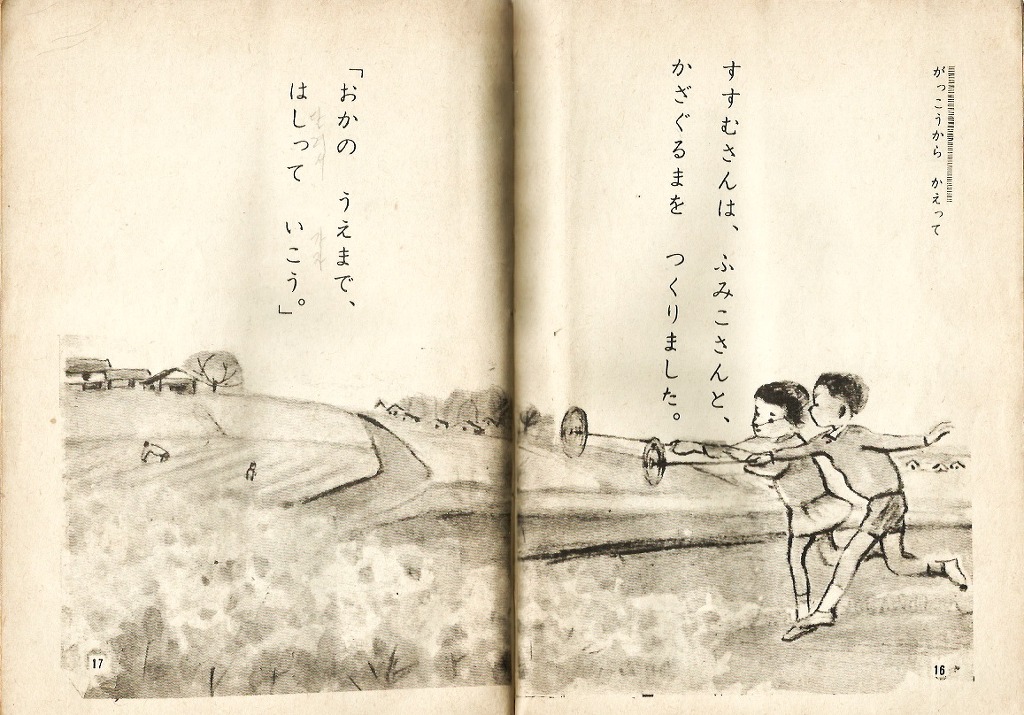 がっこうから かえって
すすむさんは、ふみこさんと、
かざぐるまを つくりました。
16
「おかの うえまで、
はしって いこう。」
17